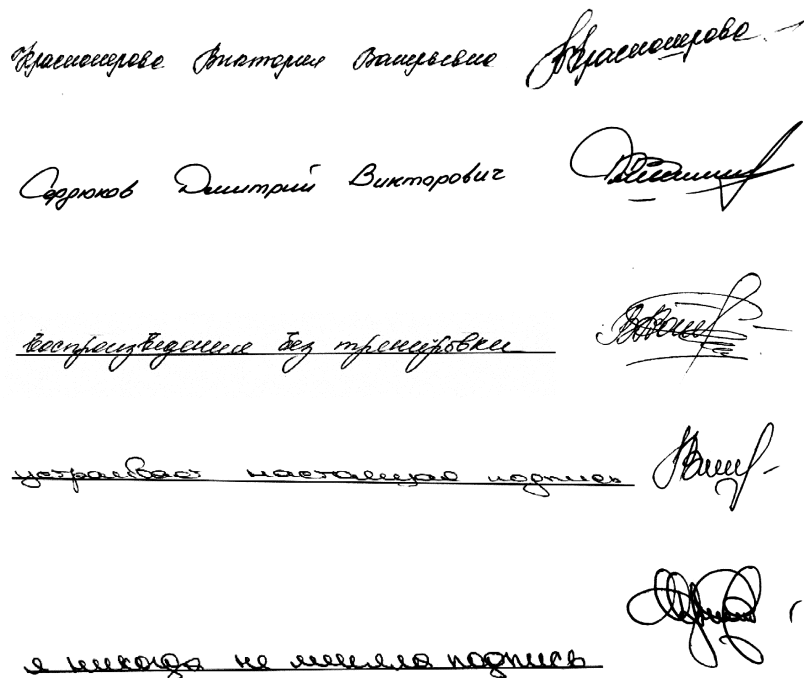 Красноперова Виктория Валерьевна Красноперова
Сердюков Дмитрий Викторович
воспроизведения без тренировки
устраивает настоящая подпись
я никогда не меняла подпись